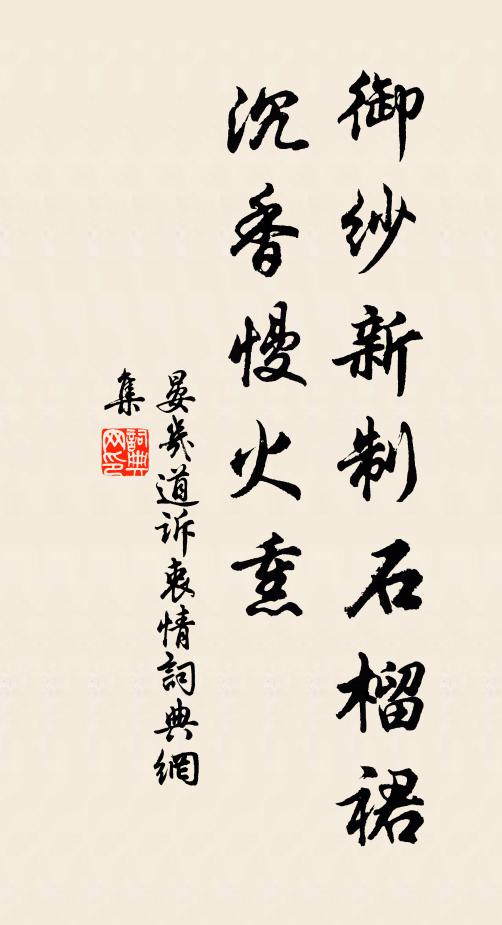 御纱新制石榴裙
沉香慢火熏
晏幾道訴衷情詞典網
集
詞典网印